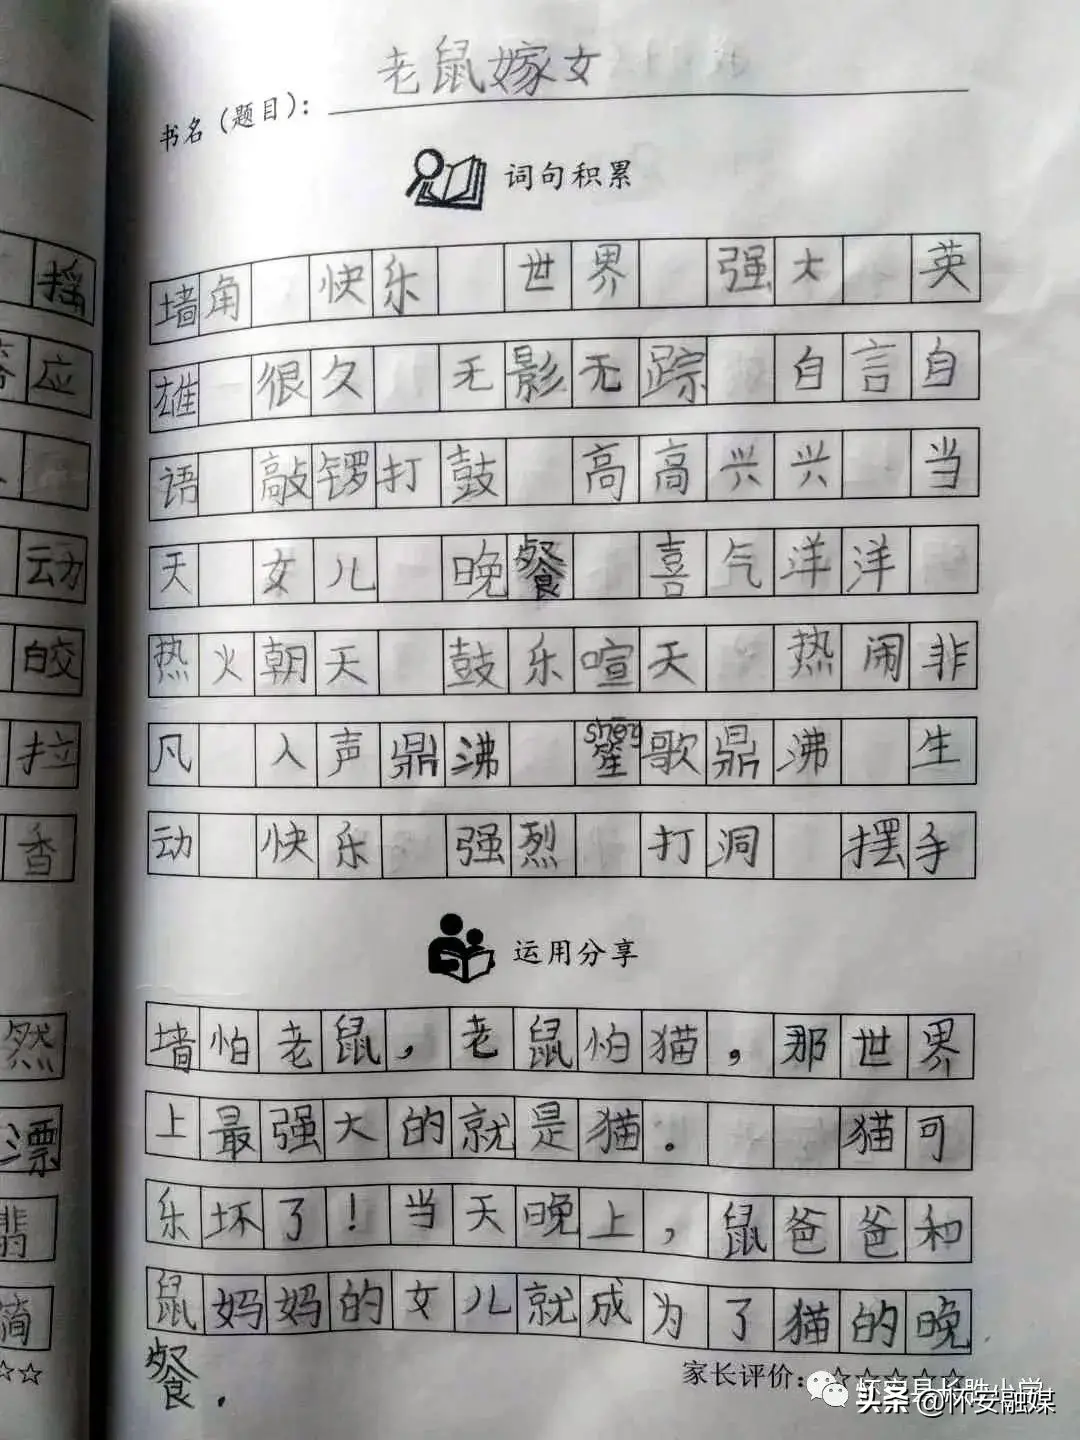 老鼠嫁女
书名（题目）：
词句积累
墙角 快乐 世界 强大 英
雄 很久 无影无踪 自言自
语 敲锣打鼓 高高兴兴 当
天 女儿 晚餐 喜气洋洋
热火朝天 鼓乐喧天 热闹非
凡 人声鼎沸 shēng笙歌鼎沸 生
动 快乐 强烈 打洞 摆手
运用分享
墙怕老鼠，老鼠怕猫，那世界
上最强大的就是猫。 猫可
乐坏了！当天晚上，鼠爸爸和
鼠妈妈的女儿就成为了猫的晚
餐.
家长评价：☆☆☆☆☆
怀安县长胜小学
头条@怀安融媒
摇
应
动
皎
拉
香
然
漂
翡
简
☆☆